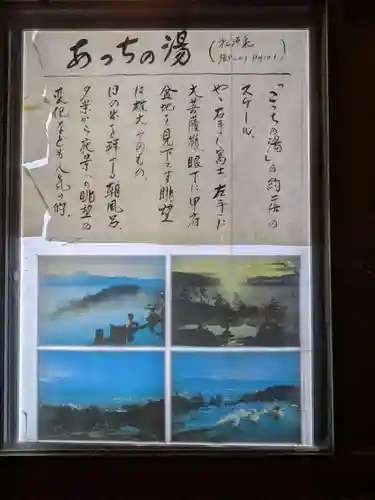 あっちの湯
「こっちの湯」の約二倍の
スケール。
やや右手に富士 左手に
大菩薩嶺、眼下に甲府
盆地を見下ろす眺望
は雄大そのもの。
日の出を拝する朝風呂、
夕景から夜景への眺望の
変化なども人気の的。